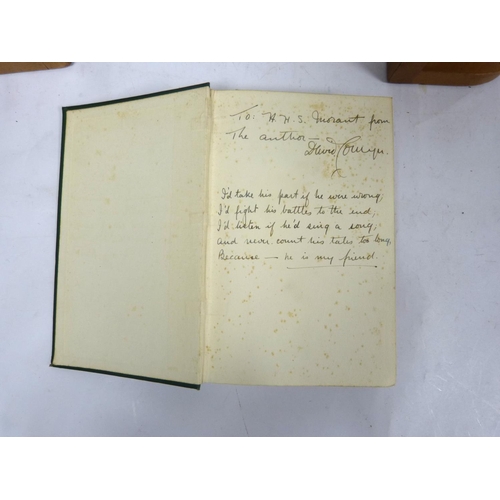 To: H. H. S. Morant from
The author —
David
I'd take his part if he were wrong,
I'd fight his battles to the end,
I'd listen if he'd sing a song,
and never count his tales too long,
Because — he is my friend.